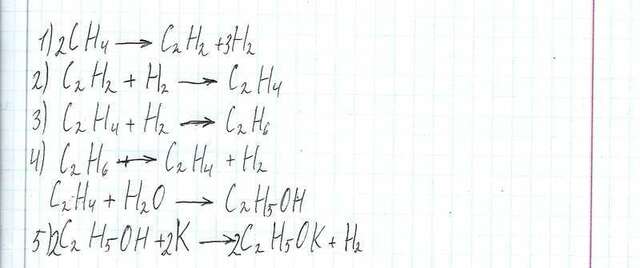 1) 2CH₄ → C₂H₂ + 3H₂
2) C₂H₂ + H₂ → C₂H₄
3) C₂H₄ + H₂ → C₂H₆
4) C₂H₆ → C₂H₄ + H₂
C₂H₄ + H₂O → C₂H₅OH
5) 2C₂H₅OH + 2K → 2C₂H₅OK + H₂